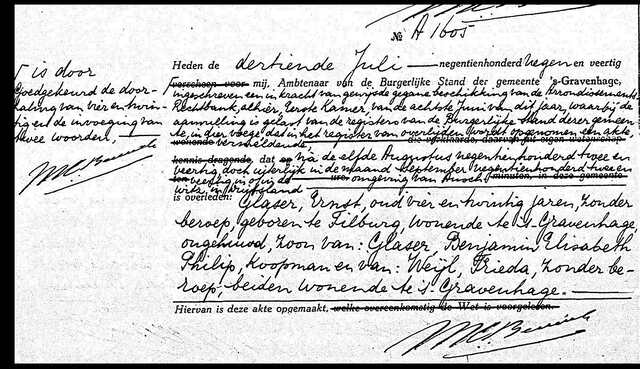 № A 1605
Heden de dertiende Juli — negentienhonderd negen en veertig
verscheen voor mij, Ambtenaar van de Burgerlijke Stand der gemeente 's-Gravenhage,
ingeschreven en in kracht van gewijsde gegane beschikking van de Arrondissements
Rechtbank, alhier, Eerste Kamer, van de achtste Juni van dit jaar, waarbij de
aanvulling is gelast van de registers van de Burgerlijke Stand dezer gemeen-
te, in dier voege dat in het register van overlijden wordt opgenomen een akte,
wonende vermeldende die verklaarde, daarvan uit eigen wetenschap
kennis dragende, dat op na de elfde Augustus negentienhonderd twee en
veertig, doch uiterlijk in de maand September negentienhonderd twee en
ten veertig in of in de ure omgeving van Ausch- minuten, in deze gemeente
witz, in Duitsland
is overleden: Glaser, Ernst, oud vier en twintig jaren, zonder
beroep, geboren te Tilburg, wonende te 's Gravenhage,
ongehuwd, zoon van: Glaser, Benjamin Elisabeth
Philip, koopman en van: Weijl, Frieda, zonder be-
roep, beiden wonende te 's Gravenhage. —
Hiervan is deze akte opgemaakt, welke overeenkomstig de Wet is voorgelezen.
is door
Goedgekeurd de door-
haling van vier en twin-
tig en de invoeging van
twee woorden, —